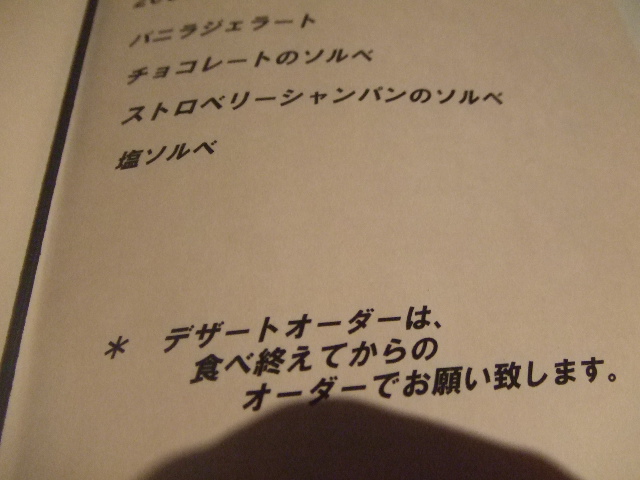 バニラジェラート
チョコレートのソルベ
ストロベリーシャンパンのソルベ
塩ソルベ
＊ デザートオーダーは、
食べ終えてからの
オーダーでお願い致します。